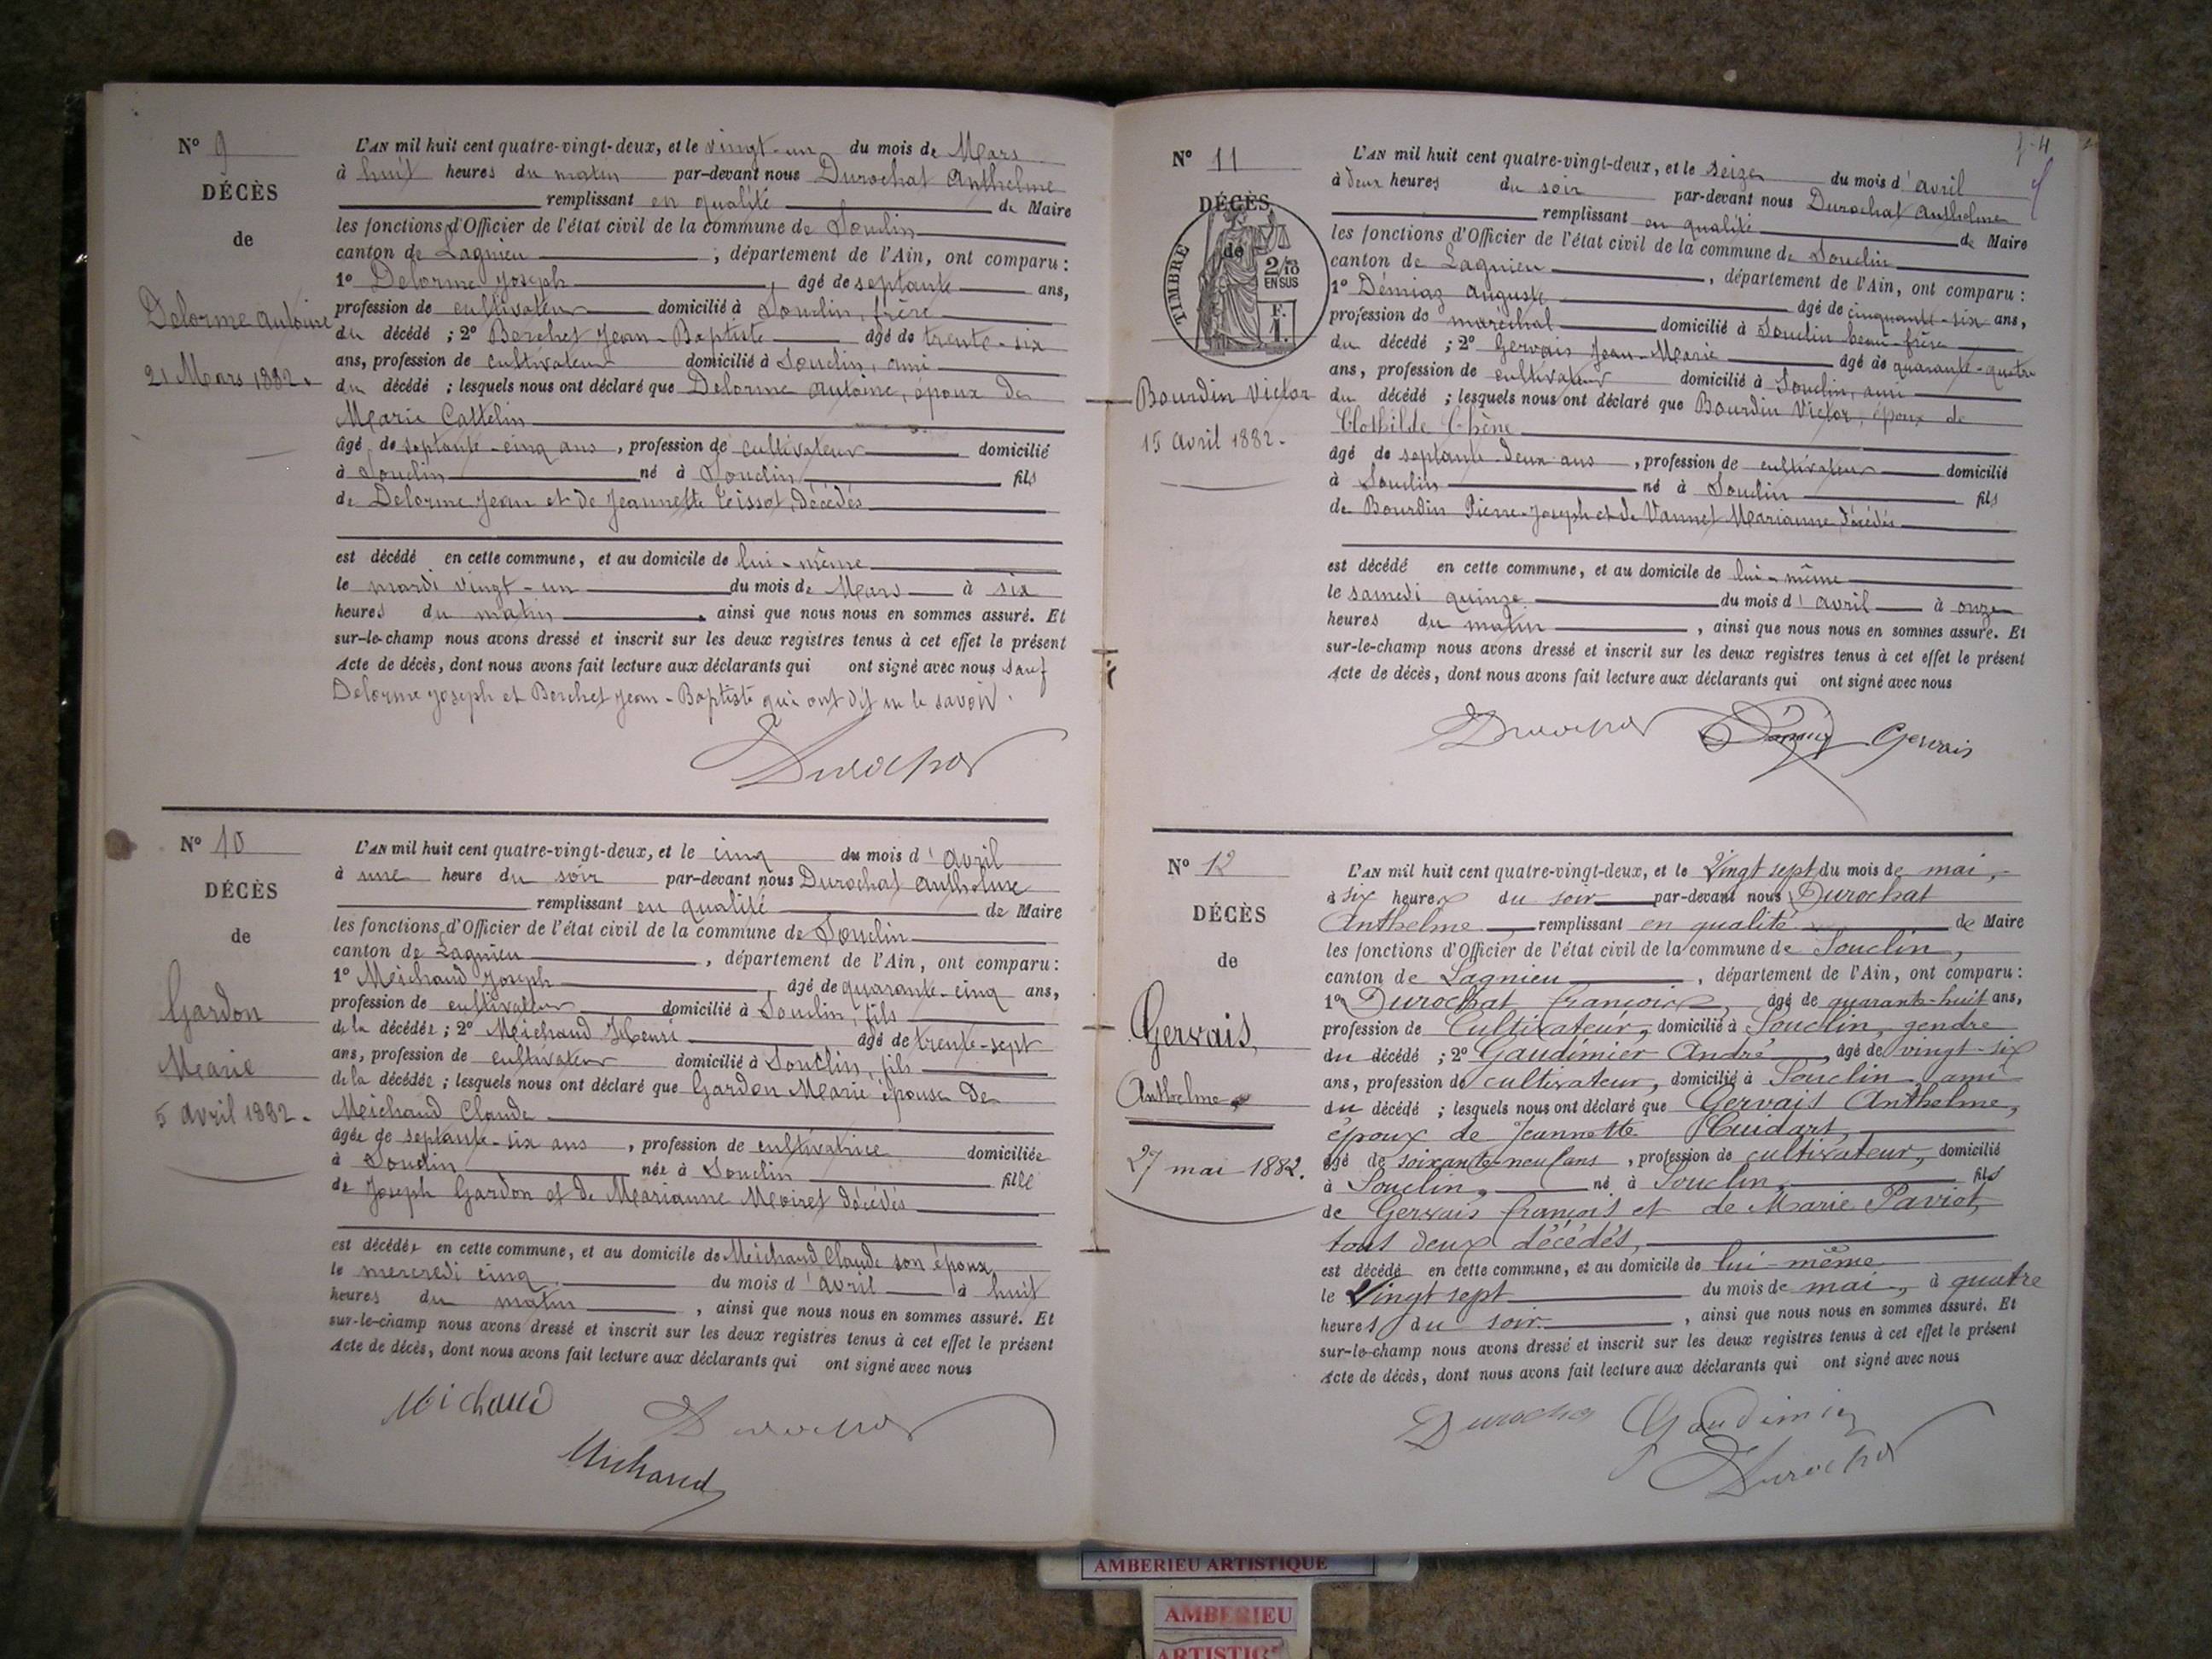 N° 9
DÉCÈS
de
Delorme Antoine
21 Mars 1882.
L'AN mil huit cent quatre-vingt-deux, et le vingt-un du mois de Mars
à huit heures du matin par-devant nous Durochat Anthelme
remplissant en qualité de Maire
les fonctions d'Officier de l'état civil de la commune de Souclin
canton de Lagnieu ; département de l'Ain, ont comparu :
1° Delorme Joseph , âgé de septante ans,
profession de cultivateur domicilié à Souclin, frère
du décédé ; 2° Berchet Jean-Baptiste âgé de trente-six
ans, profession de cultivateur domicilié à Souclin, ami
du décédé ; lesquels nous ont déclaré que Delorme Antoine, époux de
Marie Cattelin
âgé de septante-cinq ans , profession de cultivateur domicilié
à Souclin né à Souclin fils
de Delorme Jean et de Jeannette Teissot, décédés
est décédé en cette commune, et au domicile de lui-même
le mardi vingt-un du mois de Mars à six
heures du matin , ainsi que nous nous en sommes assuré. Et
sur-le-champ nous avons dressé et inscrit sur les deux registres tenus à cet effet le présent
Acte de décès, dont nous avons fait lecture aux déclarants qui ont signé avec nous sauf
Delorme Joseph et Berchet Jean-Baptiste qui ont dit ne le savoir.
Durochat
N° 10
DÉCÈS
de
Gardon
Marie
5 avril 1882.
L'AN mil huit cent quatre-vingt-deux, et le cinq du mois d'avril
à une heure du soir par-devant nous Durochat Anthelme
remplissant en qualité de Maire
les fonctions d'Officier de l'état civil de la commune de Souclin
canton de Lagnieu , département de l'Ain, ont comparu :
1° Meichaud Joseph , âgé de quarante-cinq ans,
profession de cultivateur domicilié à Souclin, fils
de la décédée ; 2° Meichaud Henri âgé de trente-sept
ans, profession de cultivateur domicilié à Souclin, fils
de la décédée ; lesquels nous ont déclaré que Gardon Marie épouse de
Meichaud Claude
âgée de septante-six ans , profession de cultivatrice domiciliée
à Souclin née à Souclin fille
de Joseph Gardon et de Marianne Moiret décédés
est décédée en cette commune, et au domicile de Meichaud Claude son époux
le mercredi cinq du mois d'avril à huit
heures du matin , ainsi que nous nous en sommes assuré. Et
sur-le-champ nous avons dressé et inscrit sur les deux registres tenus à cet effet le présent
Acte de décès, dont nous avons fait lecture aux déclarants qui ont signé avec nous
Michaud
Durochat
Michaud
N° 11
DÉCÈS
de
TIMBRE
2/10
EN SUS
F.
1.
Bourdin Victor
15 avril 1882.
L'AN mil huit cent quatre-vingt-deux, et le seize du mois d'avril
à deux heures du soir par-devant nous Durochat Anthelme
remplissant en qualité de Maire
les fonctions d'Officier de l'état civil de la commune de Souclin
canton de Lagnieu , département de l'Ain, ont comparu :
1° Démiaz Auguste âgé de cinquante-six ans,
profession de maréchal domicilié à Souclin beau-frère
du décédé ; 2° Gervais Jean-Marie âgé de quarante-quatre
ans, profession de cultivateur domicilié à Souclin, ami
du décédé ; lesquels nous ont déclaré que Bourdin Victor, époux de
Clothilde Chêne
âgé de septante-deux ans , profession de cultivateur domicilié
à Souclin né à Souclin fils
de Bourdin Pierre-Joseph et de Vannet Marianne, décédés
est décédé en cette commune, et au domicile de lui-même
le samedi quinze du mois d'avril à onze
heures du matin , ainsi que nous nous en sommes assuré. Et
sur-le-champ nous avons dressé et inscrit sur les deux registres tenus à cet effet le présent
Acte de décès, dont nous avons fait lecture aux déclarants qui ont signé avec nous
Durochat Gervais
N° 12
DÉCÈS
de
Gervais,
Anthelme
27 mai 1882.
L'AN mil huit cent quatre-vingt-deux, et le Vingt sept du mois de mai,
à six heures du soir par-devant nous Durochat
Anthelme remplissant en qualité de Maire
les fonctions d'Officier de l'état civil de la commune de Souclin,
canton de Lagnieu , département de l'Ain, ont comparu :
1° Durochat François, âgé de quarante-huit ans,
profession de Cultivateur, domicilié à Souclin, gendre
du décédé ; 2° Gaudimier André , âgé de vingt-six
ans, profession de cultivateur, domicilié à Souclin, ami
du décédé ; lesquels nous ont déclaré que Gervais Anthelme,
époux de Jeannette Cuidart,
âgé de soixante-neuf ans , profession de cultivateur, domicilié
à Souclin, né à Souclin, fils
de Gervais François et de Marie Paviot,
tous deux décédés,
est décédé en cette commune, et au domicile de lui-même
le Vingt sept du mois de mai, à quatre
heures du soir , ainsi que nous nous en sommes assuré. Et
sur-le-champ nous avons dressé et inscrit sur les deux registres tenus à cet effet le présent
Acte de décès, dont nous avons fait lecture aux déclarants qui ont signé avec nous
Durochat Gaudimier
Durochat
AMBERIEU ARTISTIQUE
AMBERIEU